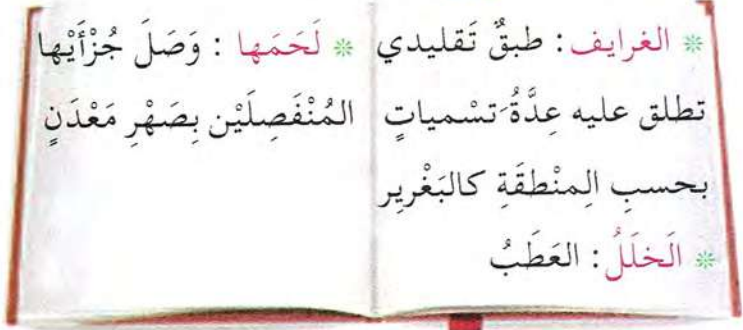 * الغرايف: طبقٌ تَقليدي
تطلق عليه عِدَّةُ تَسْمياتٍ
بحسبِ المِنْطقَةِ كالبَغْرِير
* الَخلَلُ: العَطَبُ
* لَحَمَها : وَصَلَ جُزْأَيْها
المُنْفَصِلَيْن بِصَهْرِ مَعْدَنٍ